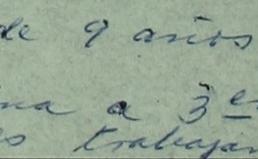 de 9 años
na a 3er
es trabajan